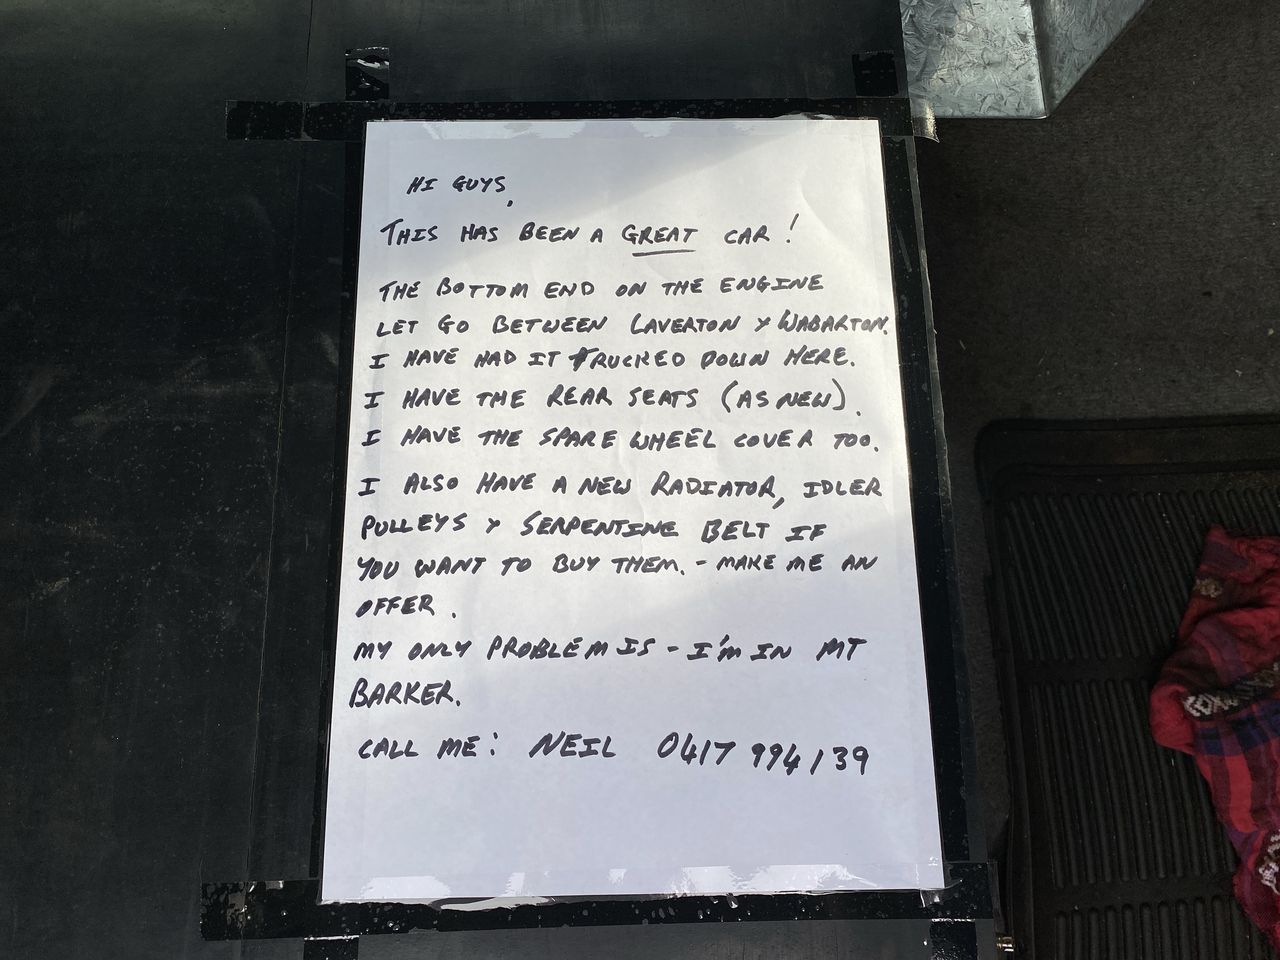 HI GUYS,
THIS HAS BEEN A GREAT CAR!
THE BOTTOM END ON THE ENGINE
LET GO BETWEEN LAVERTON & WABARTON.
I HAVE HAD IT TRUCKED DOWN HERE.
I HAVE THE REAR SEATS (AS NEW).
I HAVE THE SPARE WHEEL COVER TOO.
I ALSO HAVE A NEW RADIATOR, IDLER
PULLEYS & SERPENTINE BELT IF
YOU WANT TO BUY THEM. - MAKE ME AN
OFFER.
MY ONLY PROBLEM IS - I'M IN MT
BARKER.
CALL ME: NEIL 0417 994139